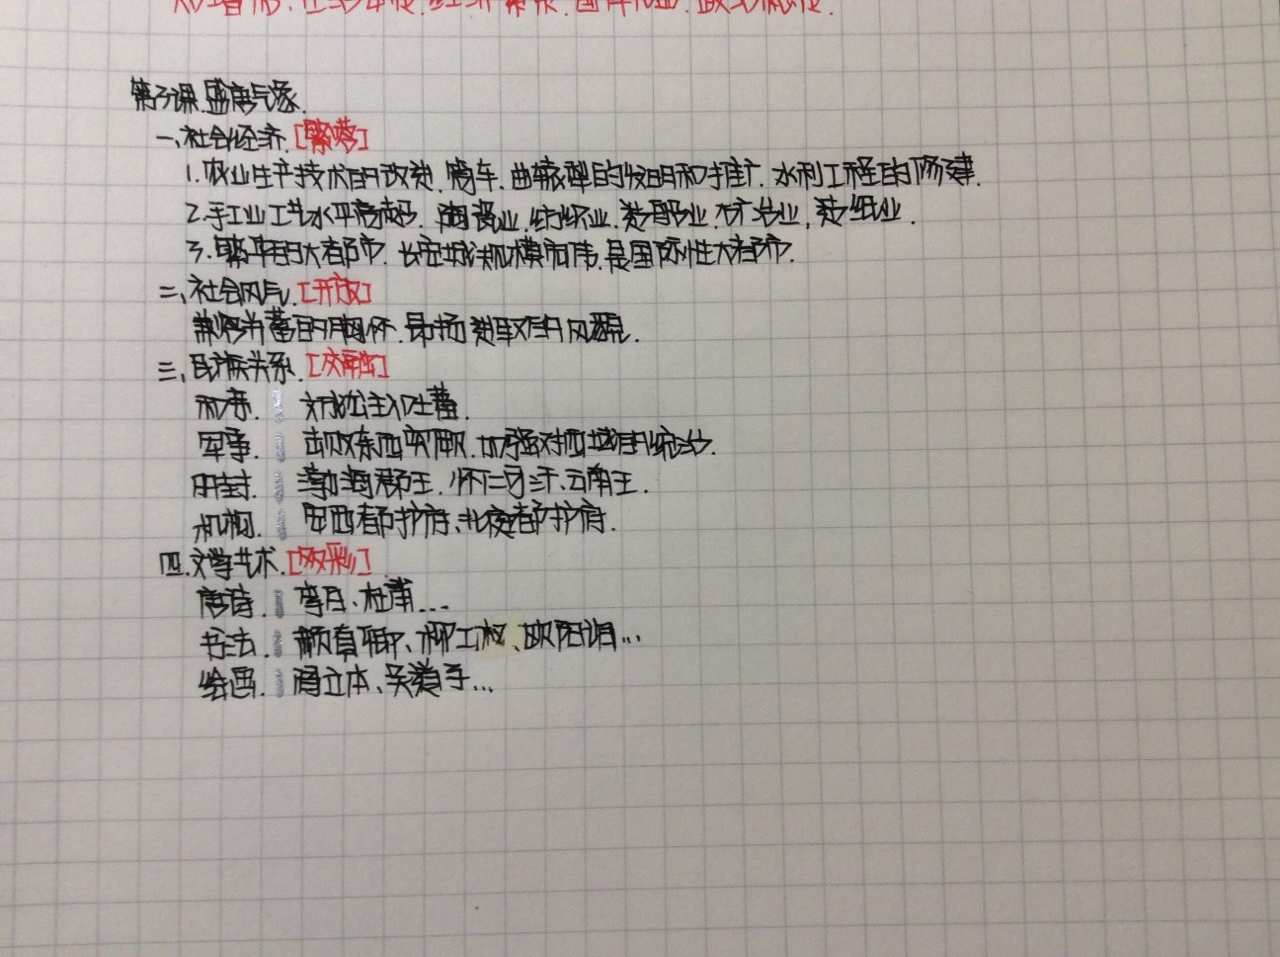 增加、社会安定、经济繁荣、
第3课.盛唐气象.
一、社会经济.[繁荣]
1.农业生产技术的改进.筒车.曲辕犁的发明和推广.水利工程的修建.
2.手工业工艺水平高超.陶瓷业.纺织业.造船业.矿冶业,造纸业.
3.繁华的大都市.长安城规模宏伟.是国际性大都市.
二、社会风气.[开放]
兼收并蓄的胸怀.昂扬进取的风貌.
三、民族关系.[交融]
和亲. 文成公主入吐蕃.
军事. 击败东西突厥.加强对西域的统治.
册封. 渤海郡王.怀仁可汗.云南王.
机构. 安西都护府、北庭都护府.
四.文学艺术.[多彩]
唐诗. 李白、杜甫...
书法. 颜真卿、柳公权、欧阳询...
绘画. 阎立本、吴道子...